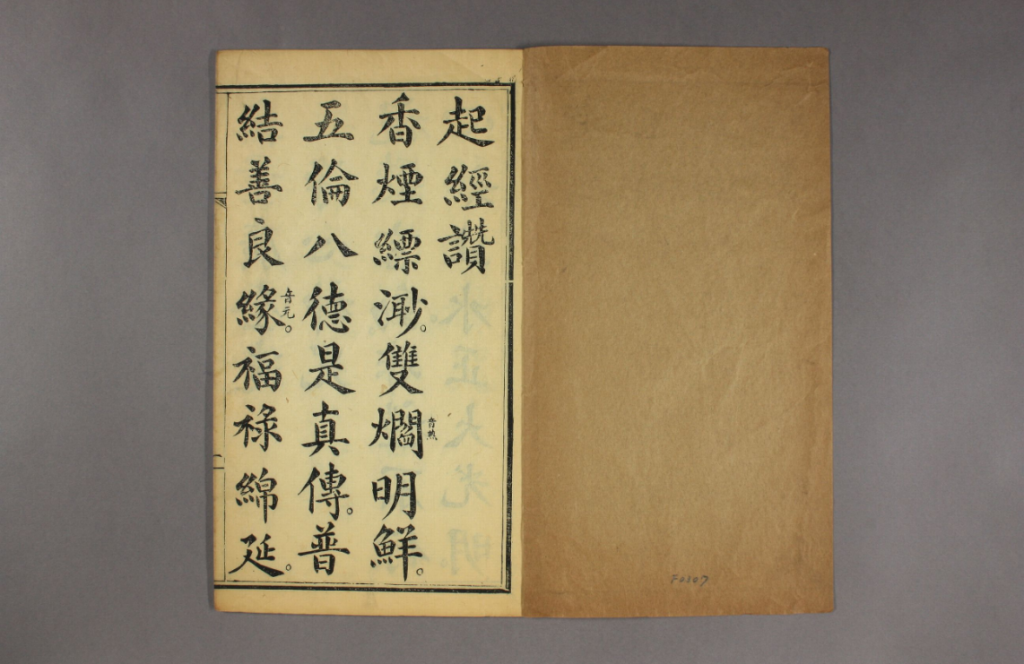 起經讚
香煙縹渺。雙爓音明鮮。
五倫八德是真傳。普
結善良緣音元。福祿綿延。